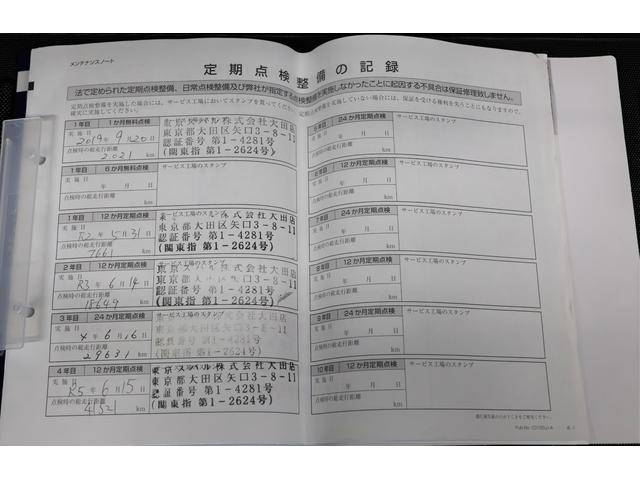 メンテナンスノート
定期点検整備の記録
法で定められた定期点検整備、日常点検整備及び弊社が指定する点検整備を実施しなかったことに起因する不具合は保証修理致しません。
定期点検整備を実施した場合には、サービス工場においてスタンプを貰ってください。
確実に実施してください。
定期点検整備を実施していない場合には、保証を受ける権利を失うことにもなりますので、
1年目 1か月無料点検
実施日
2019年9月20日
点検時の総走行距離
2,021 km
東京スバル株式会社大田店
東京都大田区矢口3-8-11
認証番号 第1-4281号
(関東指 第1-2624号)
1年目 6か月無料点検
サービス工場のスタンプ
実施日
年 月 日
点検時の総走行距離
km
1年目 12か月定期点検
実施日
R2年5月31日
点検時の総走行距離
7661 km
サービス工場のスタンプ
株式会社大田店
東京都大田区矢口3-8-11
認証番号 第1-4281号
(関東指 第1-2624号)
2年目 12か月定期点検
実施日
R3年6月14日
点検時の総走行距離
18649 km
東京スバル株式会社大田店
東京都大田区矢口3-8-11
認証番号 第1-4281号
(関東指 第1-2624号)
3年目 24か月定期点検
実施日
4年6月16日
点検時の総走行距離
29631 km
東京スバル株式会社大田店
東京都大田区矢口3-8-11
認証番号 第1-4281号
(関東指 第1-2624号)
4年目 12か月定期点検
実施日
R5年6月15日
点検時の総走行距離
41521 km
東京スバル株式会社大田店
東京都大田区矢口3-8-11
認証番号 第1-4281号
(関東指 第1-2624号)
5年目 24か月定期点検
サービス工場のスタンプ
実施日
年 月 日
点検時の総走行距離
km
6年目 12か月定期点検
サービス工場のスタンプ
実施日
年 月 日
点検時の総走行距離
km
7年目 24か月定期点検
サービス工場のスタンプ
実施日
年 月 日
点検時の総走行距離
km
8年目 12か月定期点検
サービス工場のスタンプ
実施日
年 月 日
点検時の総走行距離
km
9年目 24か月定期点検
サービス工場のスタンプ
実施日
年 月 日
点検時の総走行距離
km
10年目 12か月定期点検
サービス工場のスタンプ
実施日
年 月 日
点検時の総走行距離
km